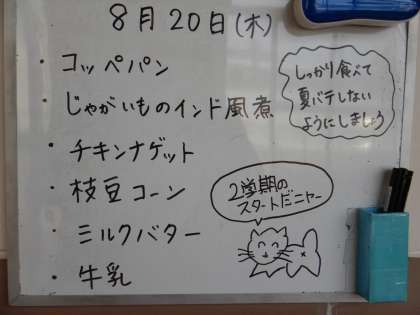 8月20日(木)
・コッペパン
・じゃがいものインド風煮
・チキンナゲット
・枝豆コーン
・ミルクバター
・牛乳
しっかり食べて
夏バテしない
ようにしましょう
2学期の
スタートだニャー